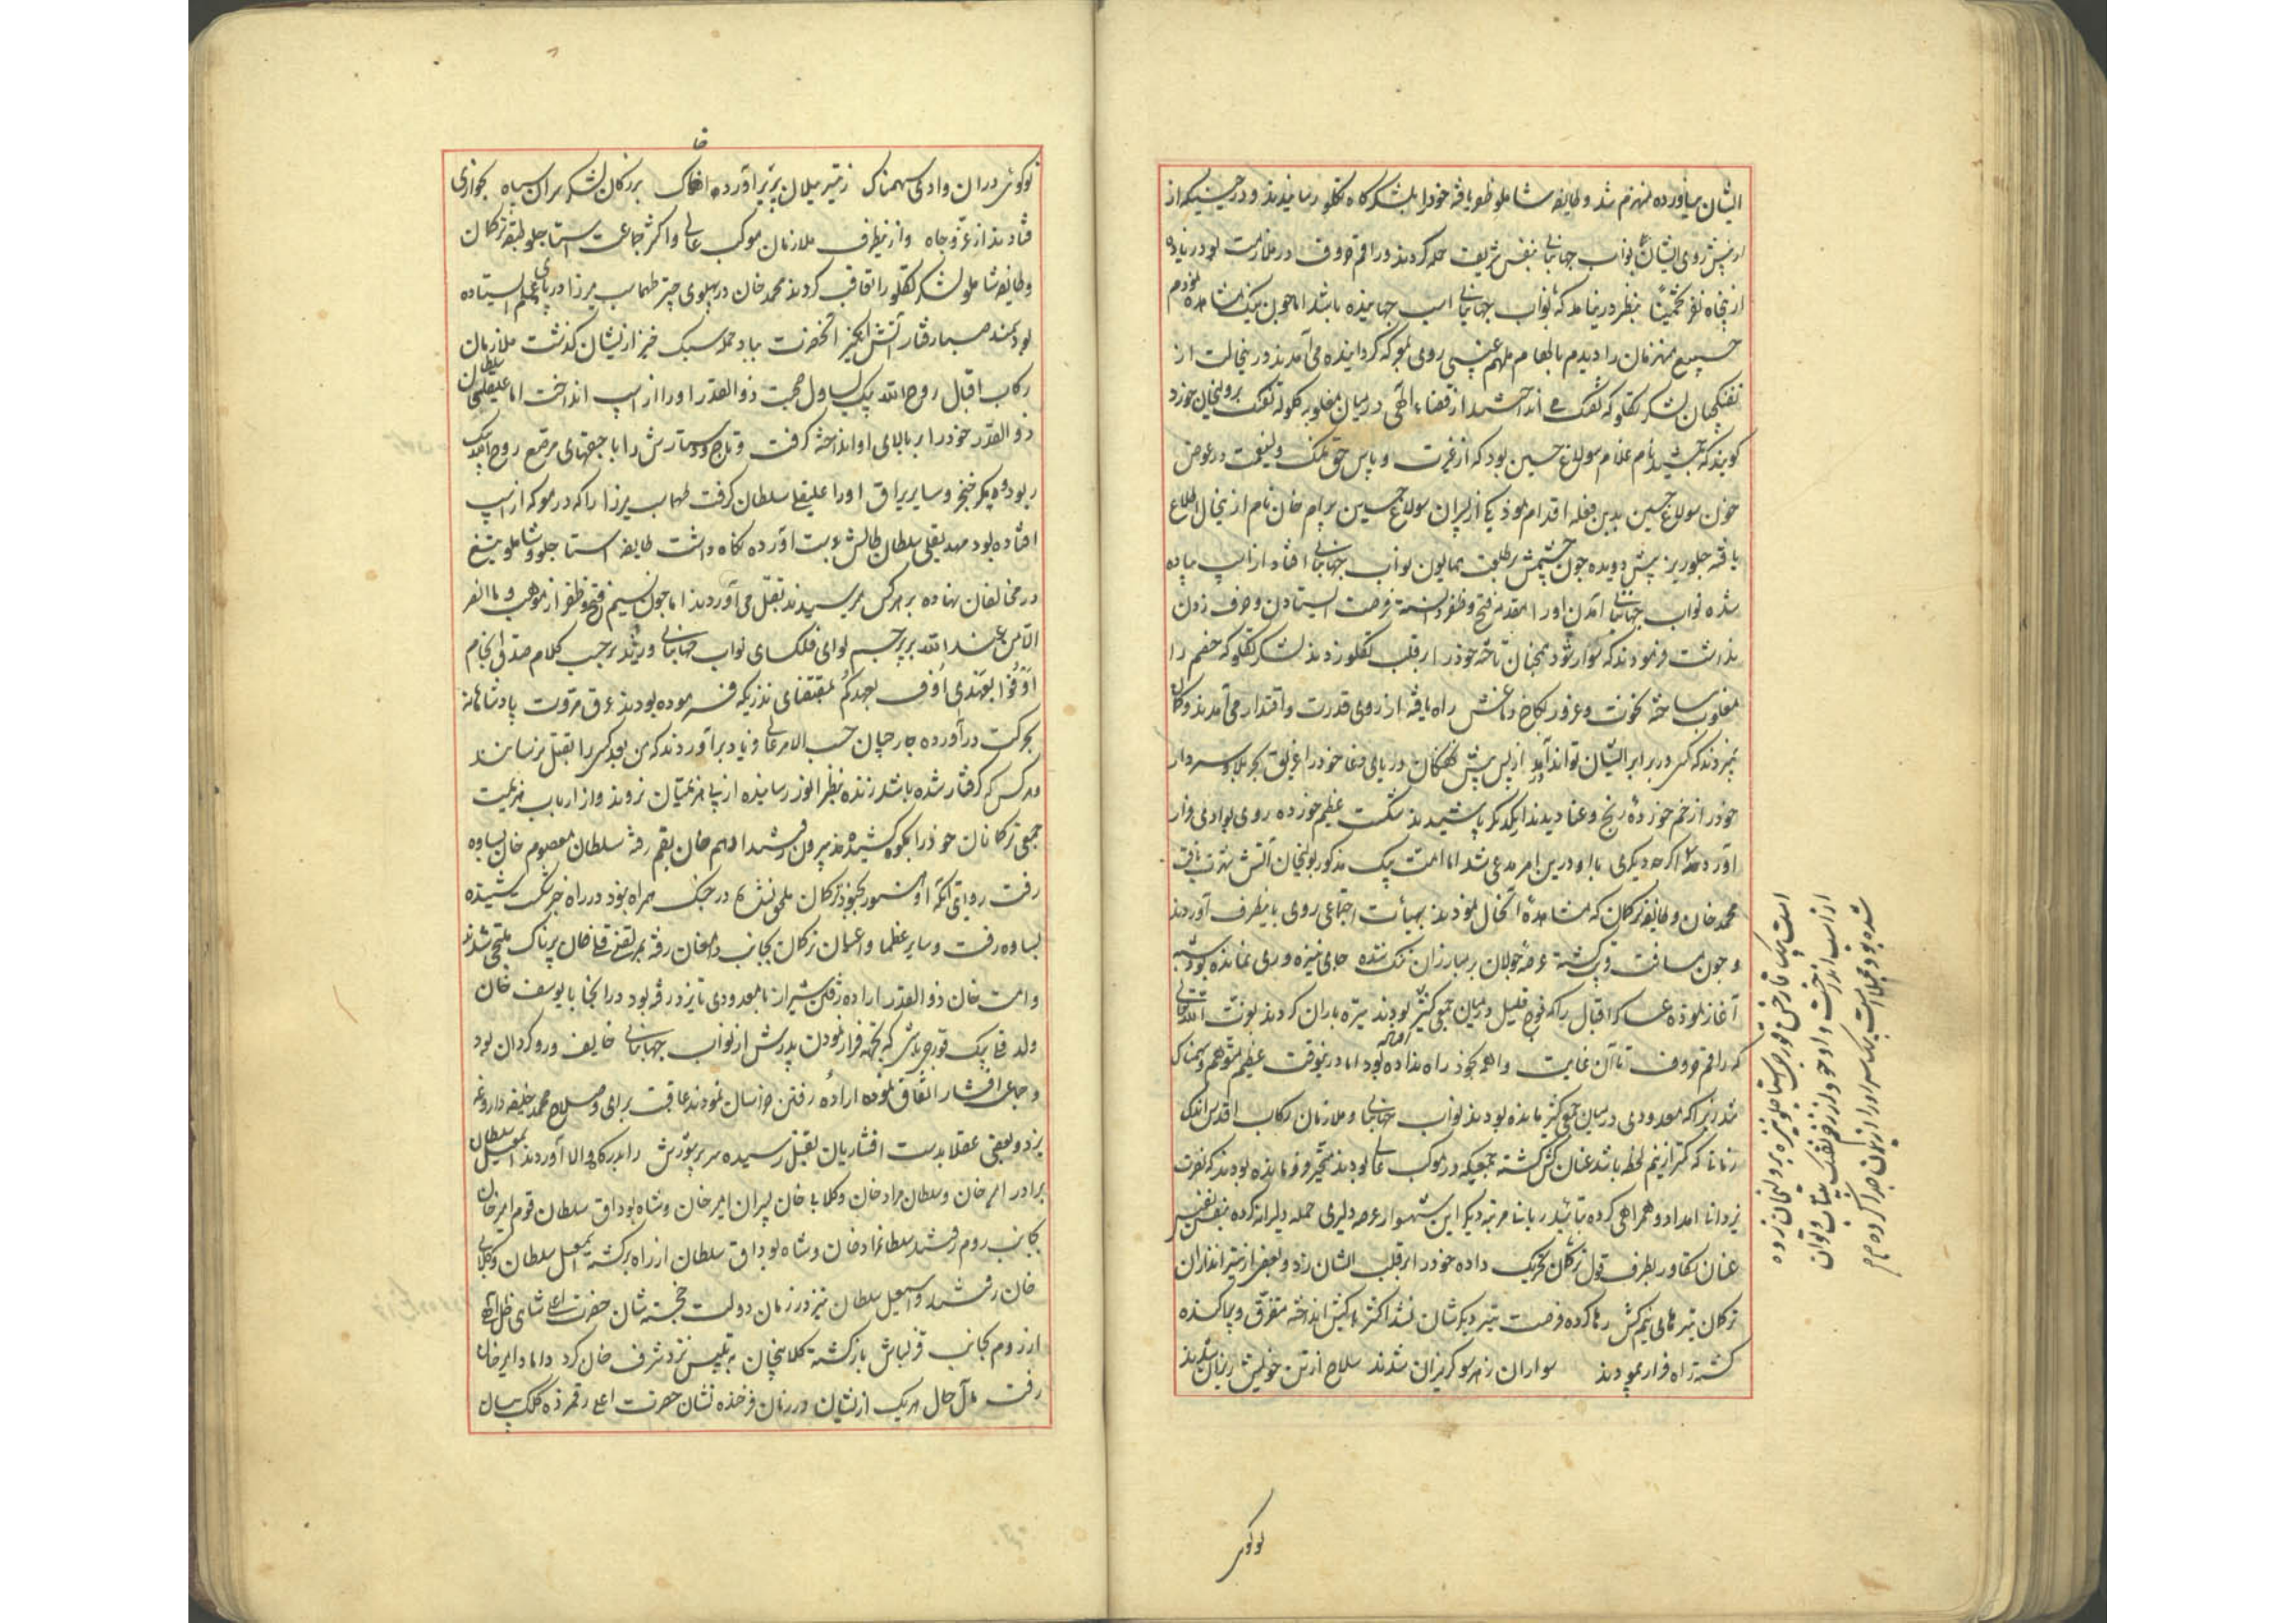 ایشان نیاورده منهزم شد و طایفه شاملو ظفر یافته خود را بلشکرگاه تکلو رسانیدند و در حینیکه از
از پیش روی ایشان نواب جهانبانی بنفس شریف حمله کردند و راقم حروف در ملازمت بود زیاده
از پنجاه نفر تخمیناً بنظر در نیامد که نواب جهانبانی اسب جهانیده باشد اما چون نیک مشاهده نمودم
جمیع منهزمان را دیدم بالهام ملهم غیبی روی بمعرکه گردانیده می آمدند در ینحالت از
تفنگچیان لشکر تکلو که تفنگ می انداختند از قضاء الهی در میان مغلوبه گلوله تفنگ بر ولیخان خورد
گویند که جمشید نام غلام سولاغ حسین بود که از غیرت و پاس حق نمک ولینعمت در عوض
خون سولاغ حسین بدین فعل اقدام نمود یکی از پسران سولاغ حسین بیرام خان نام از ینحال اطلاع
یافته جلوریز پیش دویده چون چشمش بر طلعت همایون نواب جهانبانی افتاد از اسب پیاده
شده نواب جهانبانی آمدن او را مقدمه فتح و ظفر دانسته فرصت ایستادن و حرف زدن
نداشت فرمودند که سوار شود همچنان تاخته خود را بر قلب تکلو زدند لشکر تکلو که خصم را
مغلوب ساخته نخوت و غرور بکاخ دماغش راه یافته از روی قدرت و اقتدار می آمدند و گمان
نمیبردند که کسی در برابر ایشان تواند آمد از پس و پیش نهنگان دریای وغا خود را غریق بحر بلا و سردار
خود را زخم خورده رنج و عنا دیدند از یکدیگر پاشیدند شکست عظیم خورده روی بوادی فرار
آوردند اگرچه دیگری با او درین امر مدعی شد اما امت بیک مذکور بولیخان آتش شهرت یافت
محمد خان و طایفه ترکمان که مشاهده آنحال نمودند بهیأت اجتماعی روی باینطرف آوردند
و چون مسافت قریب گشته عرصه جولان بر مبارزان تنگ شده جای نیزه وری نمانده بود شیبه
آغاز نموده عساکر اقبال را که فوج قلیل و میان جمعی کثیر بودند تیره باران کردند بعزت الله تعالی
که راقم حروف تا آن غایت واهمه بخود راه نداده بود اما در ینوقت عظیم متوهم و سهمناک
شد زیرا که معدودی در میان جمعی کثیر مانده بودند نواب جهانبانی و ملازمان رکاب اقدس اندک
زمانی که کمتر از نیم لحظه باشد عنان کش گشته جمعیکه در موکب عالی بودند متحیر و فرو مانده بودند که نصرت
یزدانی امداد و همراهی کرده بتأئید ربانی مرتبه دیگر این شهسوار عرصه دلیری حمله دلیرانه کرده بنفس نفیس
عنان تکاور بطرف قول ترکمان تحریک داده خود را بر قلب ایشان زد و بعضی از تیراندازان
ترکمان تیرهای نیم کش رها کرده فرصت تیر دیگرشان نشد اکثر کیش انداخته متفرق و پراکنده
گشته راه فرار نمودند سواران ز هر سو گریزان شدند سلاح از تن خویش ریزان شدند
امت بیک قارخ قورچی استاجلو نیزه بر ولیخان زده
از اسب انداخت و او خود از زخم تفنگ بیتاب و توان
شده بود مجملا امت بیک سر او را از بدن جدا کرده
تو گوئی
تو گوئی در ان وادی سهمناک ز تیر یلان پر بر آورده خاک بزرگان لشکر سران سپاه بخواری
فتادند از عز و جاه و از ینطرف ملازمان موکب عالی و اکثر جماعت استاجلو طبقه ترکمان
و طایفه شاملو لشکر تکلو را تعاقب کردند محمد خان در پهلوی چتر طهماسب میرزا در پای علم ایستاده
بود سمند صبا رفتار آتش انگیز آنحضرت بباد حمله سبک خیز از یشان گذشت ملازمان
رکاب اقبال روح الله بیک یساول صحبت ذوالقدر او را از اسپ انداخت اما علیقلی سلطان
ذوالقدر خود را بر بالای او انداخته گرفت و تاج و دستارش را با جیقهای مرصع روح الله بیک
ربود و کمر خنجر و سایر یراق او را علیقلی سلطان گرفت طهماسب میرزا را که در معرکه از اسپ
افتاده بود مهدیقلی سلطان طالش بدست آورده نگاه داشت طایفه استاجلو و شاملو تیغ
در مخالفان نهاده بر هر کس میرسیدند بقتل می آوردند اما چون نسیم فتح و ظفر از مهب و ما النصر
الا من عند الله بر پرچم لوای فلکسای نواب جهانبانی وزید بر حسب کلام صدق انجام
اوفوا بعهدی اوف بعهدکم بمقتضای نذریکه فرموده بودند عرق مروت پادشاهانه
بحرکت در آورده جارچیان حسب الامر عالی فریاد برآوردند که من بعد کسی را بقتل نرسانند
و هر کس که گرفتار شده باشد زنده بنظر انور رسانیده از پی هزیمتیان نروند و از ارباب هزیمت
جمعی ترکمانان خود را بکوه کشیده بیرون رفتند ادهم خان بقم رفته سلطان معصوم خان بساوه
رفت روایتی آنکه او بشعور بخود ترکمان ملحق نشده در جنگ همراه بود در راه خبر شکست شنیده
بساوه رفت و سایر عظما و اعیان ترکمان بجانب دامغان رفته بمرتضی قلی خان پرناک ملتجی شدند
و امت خان ذوالقدر اراده رفتن شیراز با معدودی تا یزد رفته بود در آنجا با یوسف خان
ولد قلی بیک قورچی باشی که بجهة فرار نمودن پدرش از نواب جهانبانی خایف و روگردان بود
و جماعت افشار اتفاق نموده اراده رفتن خراسان نمودند عاقبت برای و صلاح محمد خلیفه داروغه
یزد و بعضی عقلا بدست افشاریان بقتل رسیده سر پرشورش را بدرگاه والا آوردند اسمعیل سلطان
برادر امیر خان و سلطان مراد خان و کلابی خان پسران امیر خان و شاه بوداق سلطان قوم امیر خان
بجانب روم رفتند سلطان مراد خان و شاه بوداق سلطان از راه برگشته اسمعیل سلطان و کلابی
خان رفتند و اسمعیل سلطان نیز در زمان دولت خجسته نشان حضرت اعلی شاهی ظل الهی
از روم بجانب قزلباش بازگشته کلابیخان به بتلیس نزد شرف خان کرد داماد امیر خان
رفت مآل حال هر یک از یشان در زمان فرخنده نشان حضرت اعلی رقمزده کلک بیان